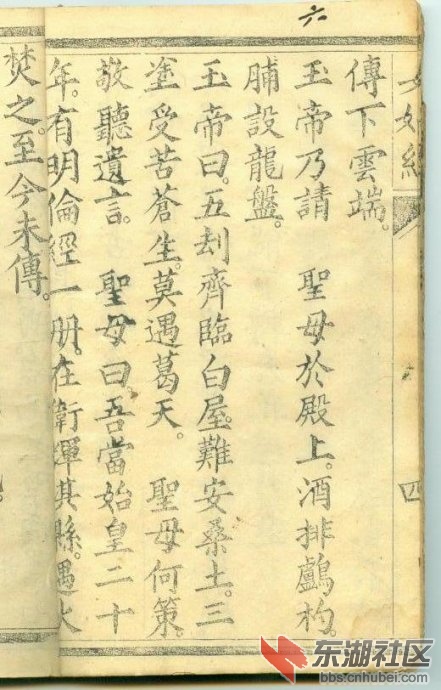 六
四
傳下雲端。
玉帝乃請 聖母於殿上。酒排鸕杓。
脯設龍盤。
玉帝曰。五刦齊臨白屋。難安桑土。三
塗受苦蒼生。莫遇葛天。 聖母何策。
敬聽遺言。 聖母曰。吾當始皇二十
年。有明倫經一册。在衛輝其縣。遇火
焚之。至今未傳。
东湖社区
bbs.cnhubei.com